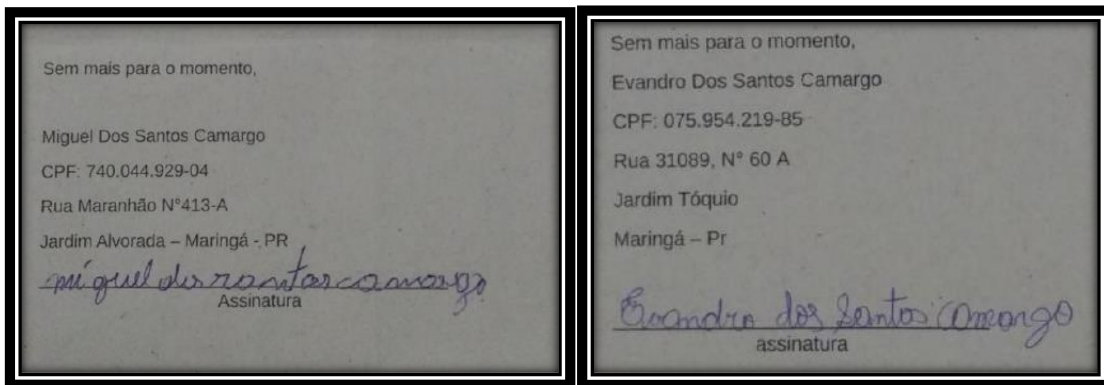 Sem mais para o momento,
Miguel Dos Santos Camargo
CPF: 740.044.929-04
Rua Maranhão N°413-A
Jardim Alvorada – Maringá - PR
miguel dos santos camargo
Assinatura
Sem mais para o momento,
Evandro Dos Santos Camargo
CPF: 075.954.219-85
Rua 31089, N° 60 A
Jardim Tóquio
Maringá – Pr
Evandro dos Santos Camargo
assinatura